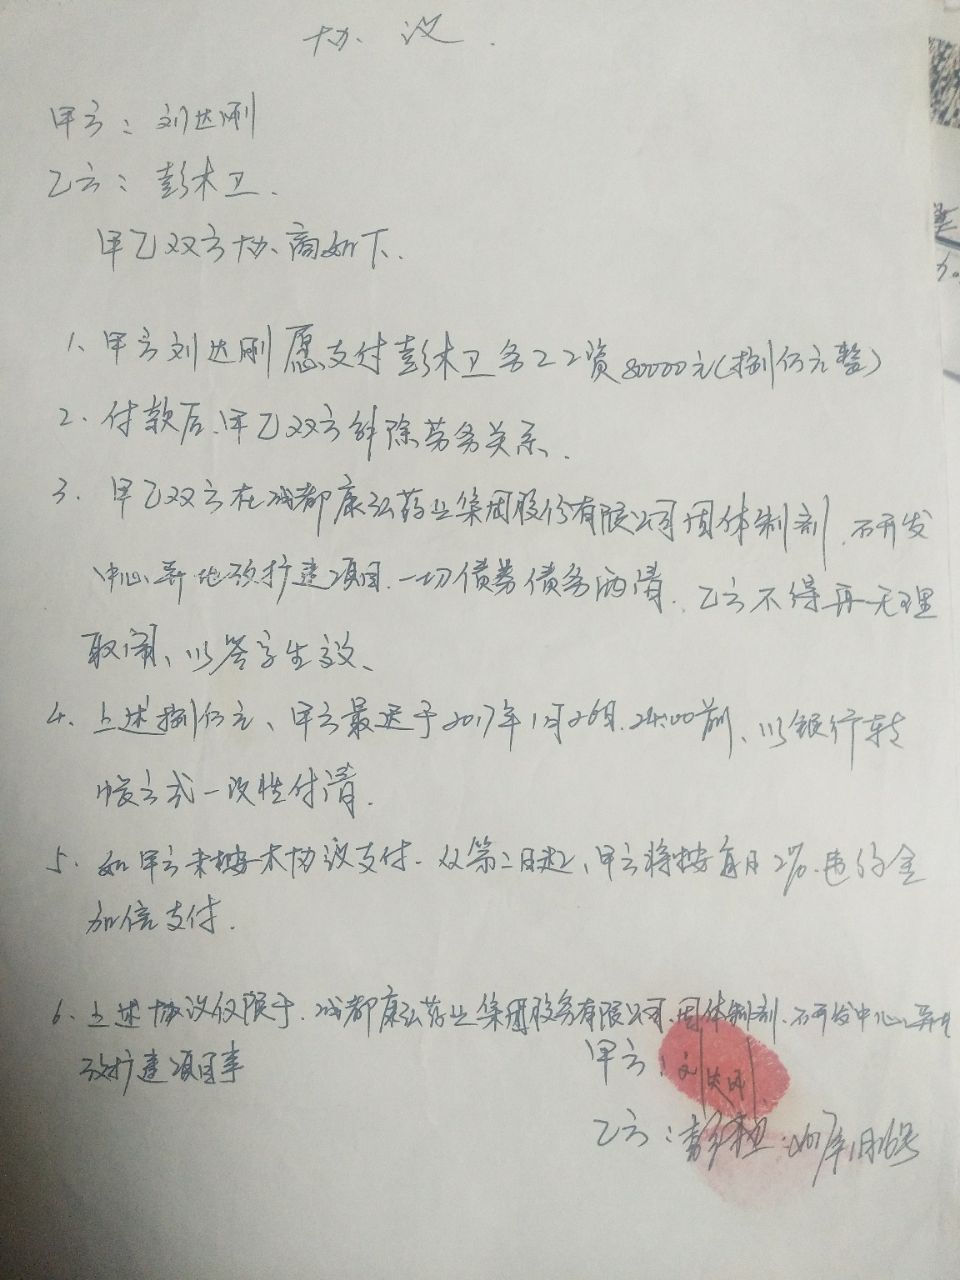 协议.
甲方：刘达刚
乙方：彭木卫.
甲乙双方协商如下.
1、甲方刘达刚愿支付彭木卫务工工资80000元(捌仟元整)
2.付款后,甲乙双方解除劳务关系.
3.甲乙双方在成都康弘药业集团股份有限公司固体制剂.研发
中心异地改扩建项目.一切债券债务两清.乙方不得再无理
取闹、以签字生效、
4.上述捌仟元、甲方最迟于2017年1月26日.24:00前、以银行转
帐方式一次性付清.
5.如甲方未按本协议支付.从第二日起、甲方将按每月2%.违约金
加倍支付.
6.上述协议仅限于.成都康弘药业集团股务有限公司.固体制剂.研发中心异地
改扩建项目事
甲方：刘达刚
乙方：彭木卫.2017年1月26号